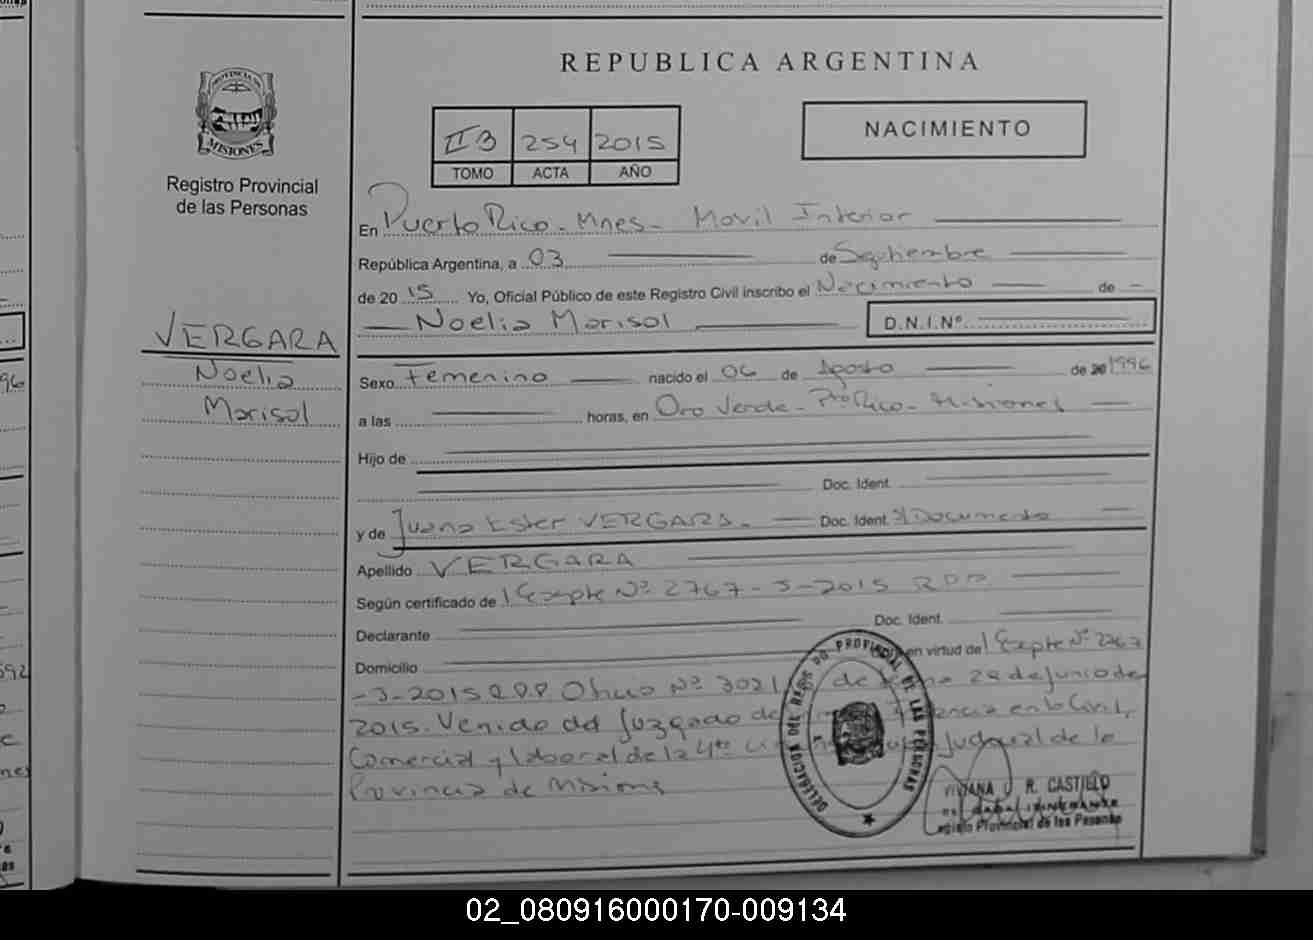 REPUBLICA ARGENTINA
PROVINCIA DE
MISIONES
Registro Provincial
de las Personas
II B 254 2015
TOMO ACTA AÑO
NACIMIENTO
En Puerto Rico - Mnes - Movil Interior
República Argentina, a 03 de Septiembre
de 2015 Yo, Oficial Público de este Registro Civil inscribo el Nacimiento de
Noelia Marisol D.N.I.Nº
VERGARA
Noelia
Marisol
Sexo Femenino nacido el 06 de Agosto de 1996
a las horas, en Oro Verde - Pto Rico - Misiones
Hijo de
Doc. Ident.
y de Juana Ester VERGARA. Doc. Ident. S/Documento
Apellido VERGARA
Según certificado de Expte Nº 2767-3-2015 RPP
Declarante Doc. Ident.
Domicilio en virtud de Expte Nº 2767
-3-2015 RPP. Oficio Nº 3021 de fecha 29 de Junio de
2015. Venido del Juzgado de Instancia en lo Civil,
Comercial y Laboral de la 4ta Judicial de la
Provincia de Misiones
DELEGACION DEL REGISTRO PROVINCIAL DE LAS PERSONAS
VIVIANA R. CASTILLO
Registro Provincial de las Personas
96
592
02_080916000170-009134